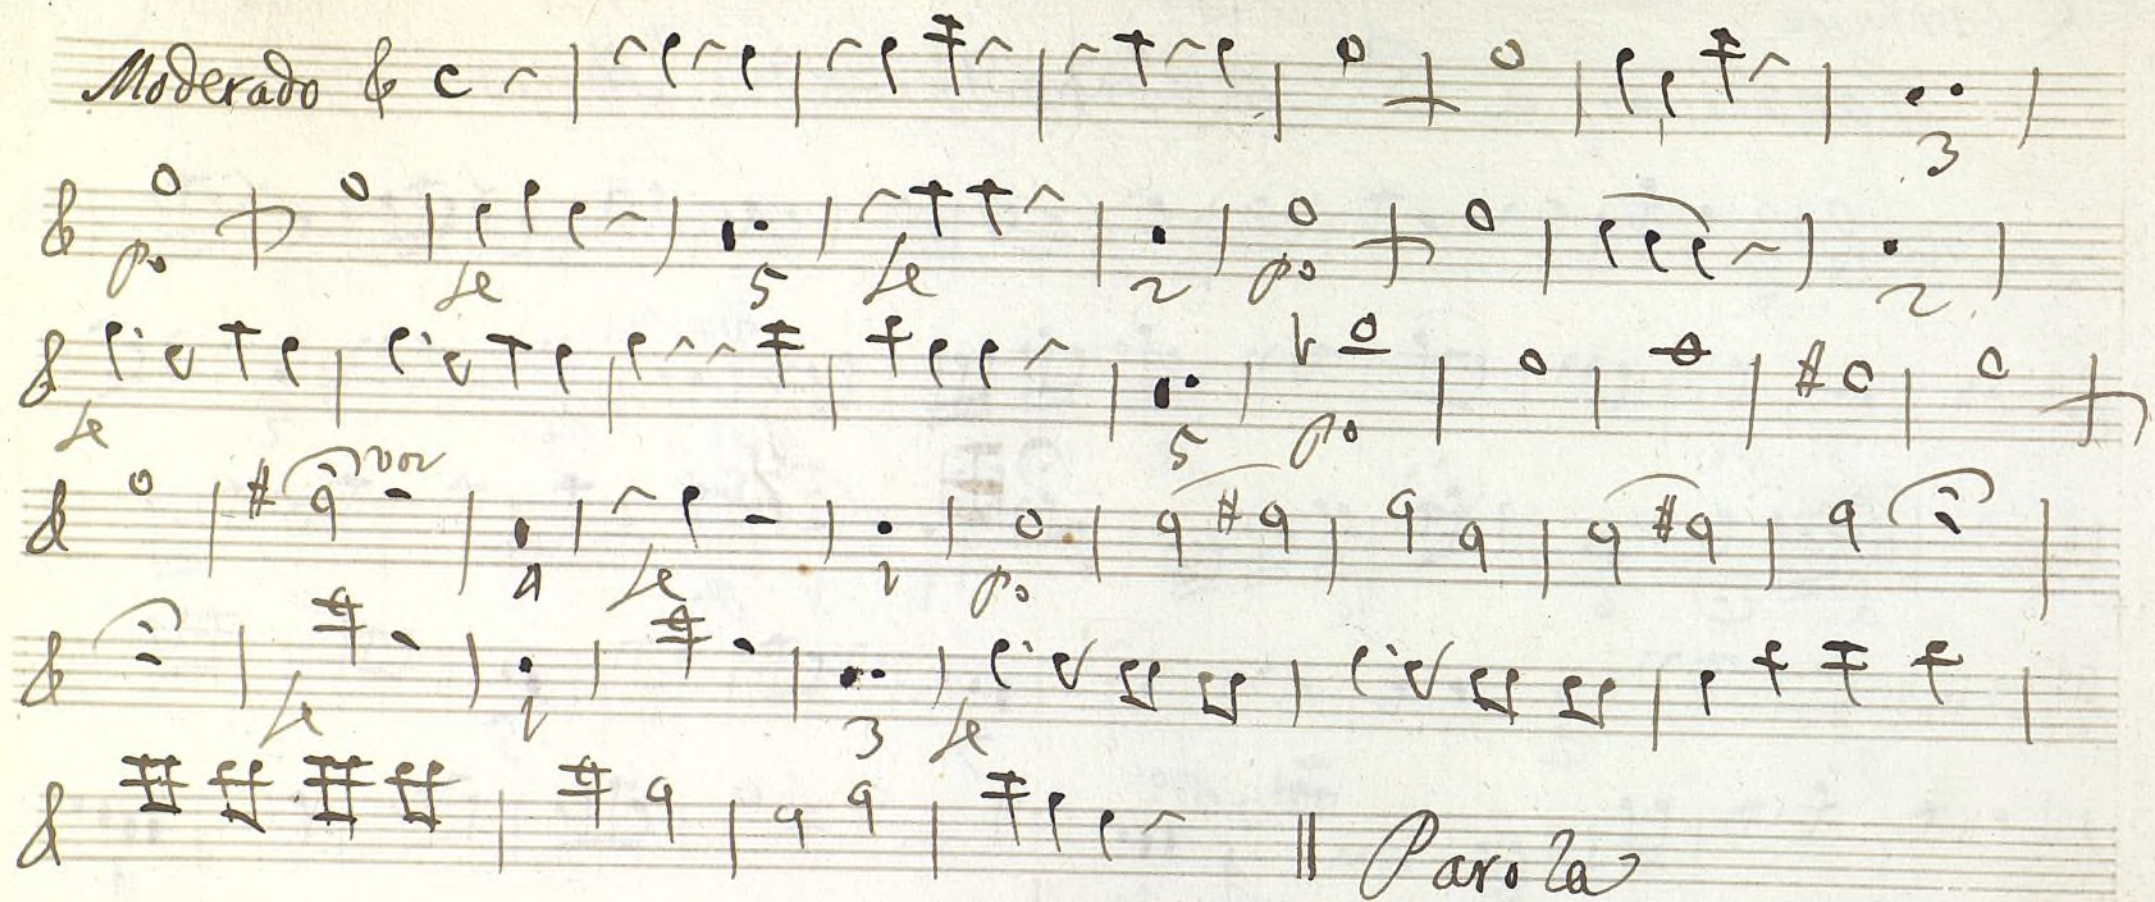 Moderado c
3
po fe 5 fe 2 po 2
fe 5 po
voz
4 fe 2 po
fe 2 3 fe
Parola